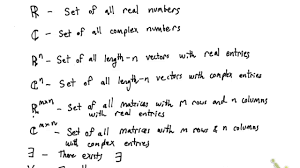 ℝ - Set of all real numbers
ℂ - Set of all complex numbers
ℝⁿ - Set of all length-n vectors with real entries
ℂⁿ - Set of all length-n vectors with complex entries
ℝᵐˣⁿ - Set of all matrices with m rows and n columns
with real entries
ℂᵐˣⁿ - Set of all matrices with m rows & n columns
with complex entries
∃ - There exists ∃